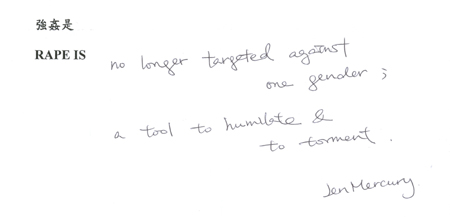 強姦是
RAPE IS no longer targeted against
one gender ;
a tool to humilate &
to torment .
Jen Mercury.